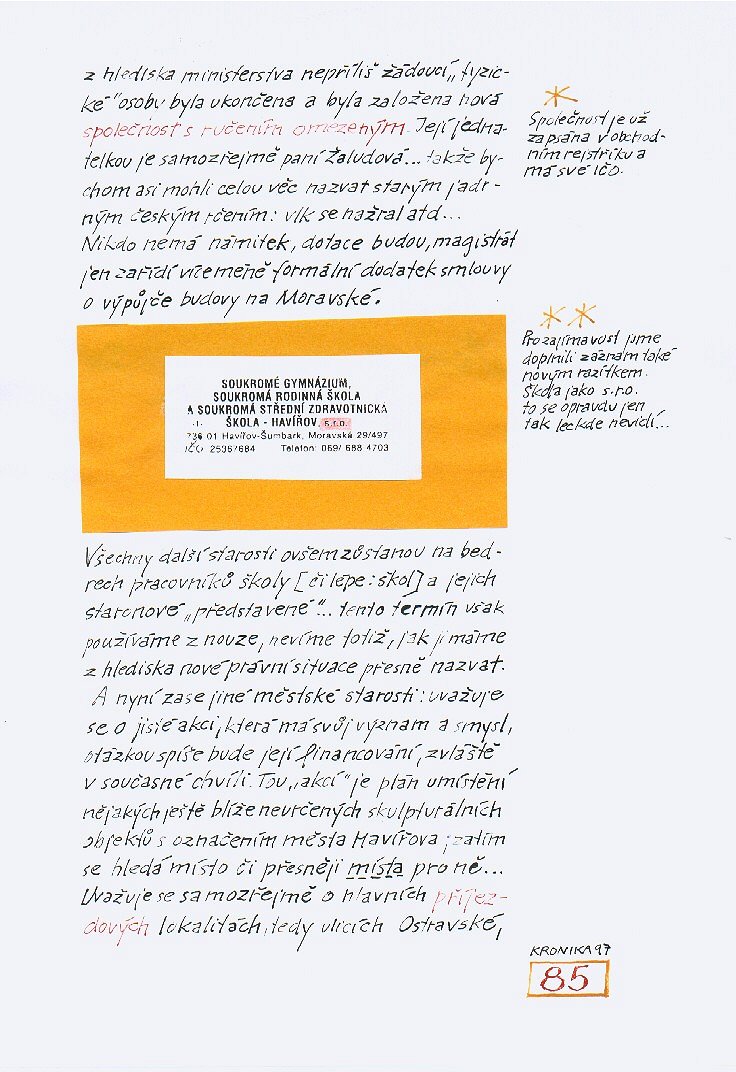 z hlediska ministerstva nepříliš žádoucí „fyzic-
ké" osobu byla ukončena a byla založena nová
společnost s ručením omezeným. Její jedna-
telkou je samozřejmě paní Žaludová... takže by-
chom asi mohli celou věc nazvat starým jadr-
ným českým rčením: vlk se nažral atd...
Nikdo nemá námitek, dotace budou, magistrát
jen zařídí víceméně formální dodatek smlouvy
o výpůjče budovy na Moravské.
*
Společnost je už
zapsána v obchod-
ním rejstříku a
má své IČO.
* *
Pro zajímavost jsme
doplnili záznam také
novým razítkem.
Škola jako s.r.o.
to se opravdu jen
tak leckde nevidí...
SOUKROMÉ GYMNÁZIUM,
SOUKROMÁ RODINNÁ ŠKOLA
A SOUKROMÁ STŘEDNÍ ZDRAVOTNICKÁ
-1- ŠKOLA - HAVÍŘOV, s.r.o.
736 01 Havířov-Šumbark, Moravská 29/497
IČO 25367684 Telefon: 069/ 688 4703
Všechny další starosti ovšem zůstanou na bed-
rech pracovníků školy [či lépe: škol] a jejich
staronové „představené"... tento termín však
používáme z nouze, nevíme totiž, jak ji máme
z hlediska nové právní situace přesně nazvat.
A nyní zase jiné městské starosti: uvažuje
se o jisté akci, která má svůj význam a smysl,
otázkou spíše bude její financování, zvláště
v současné chvíli. Tou „akcí" je plán umístění
nějakých ještě blíže neurčených skulpturálních
objektů s označením města Havířova; zatím
se hledá místo či přesněji místa pro ně...
Uvažuje se samozřejmě o hlavních příjez-
dových lokalitách, tedy ulicích Ostravské,
KRONIKA 97
85